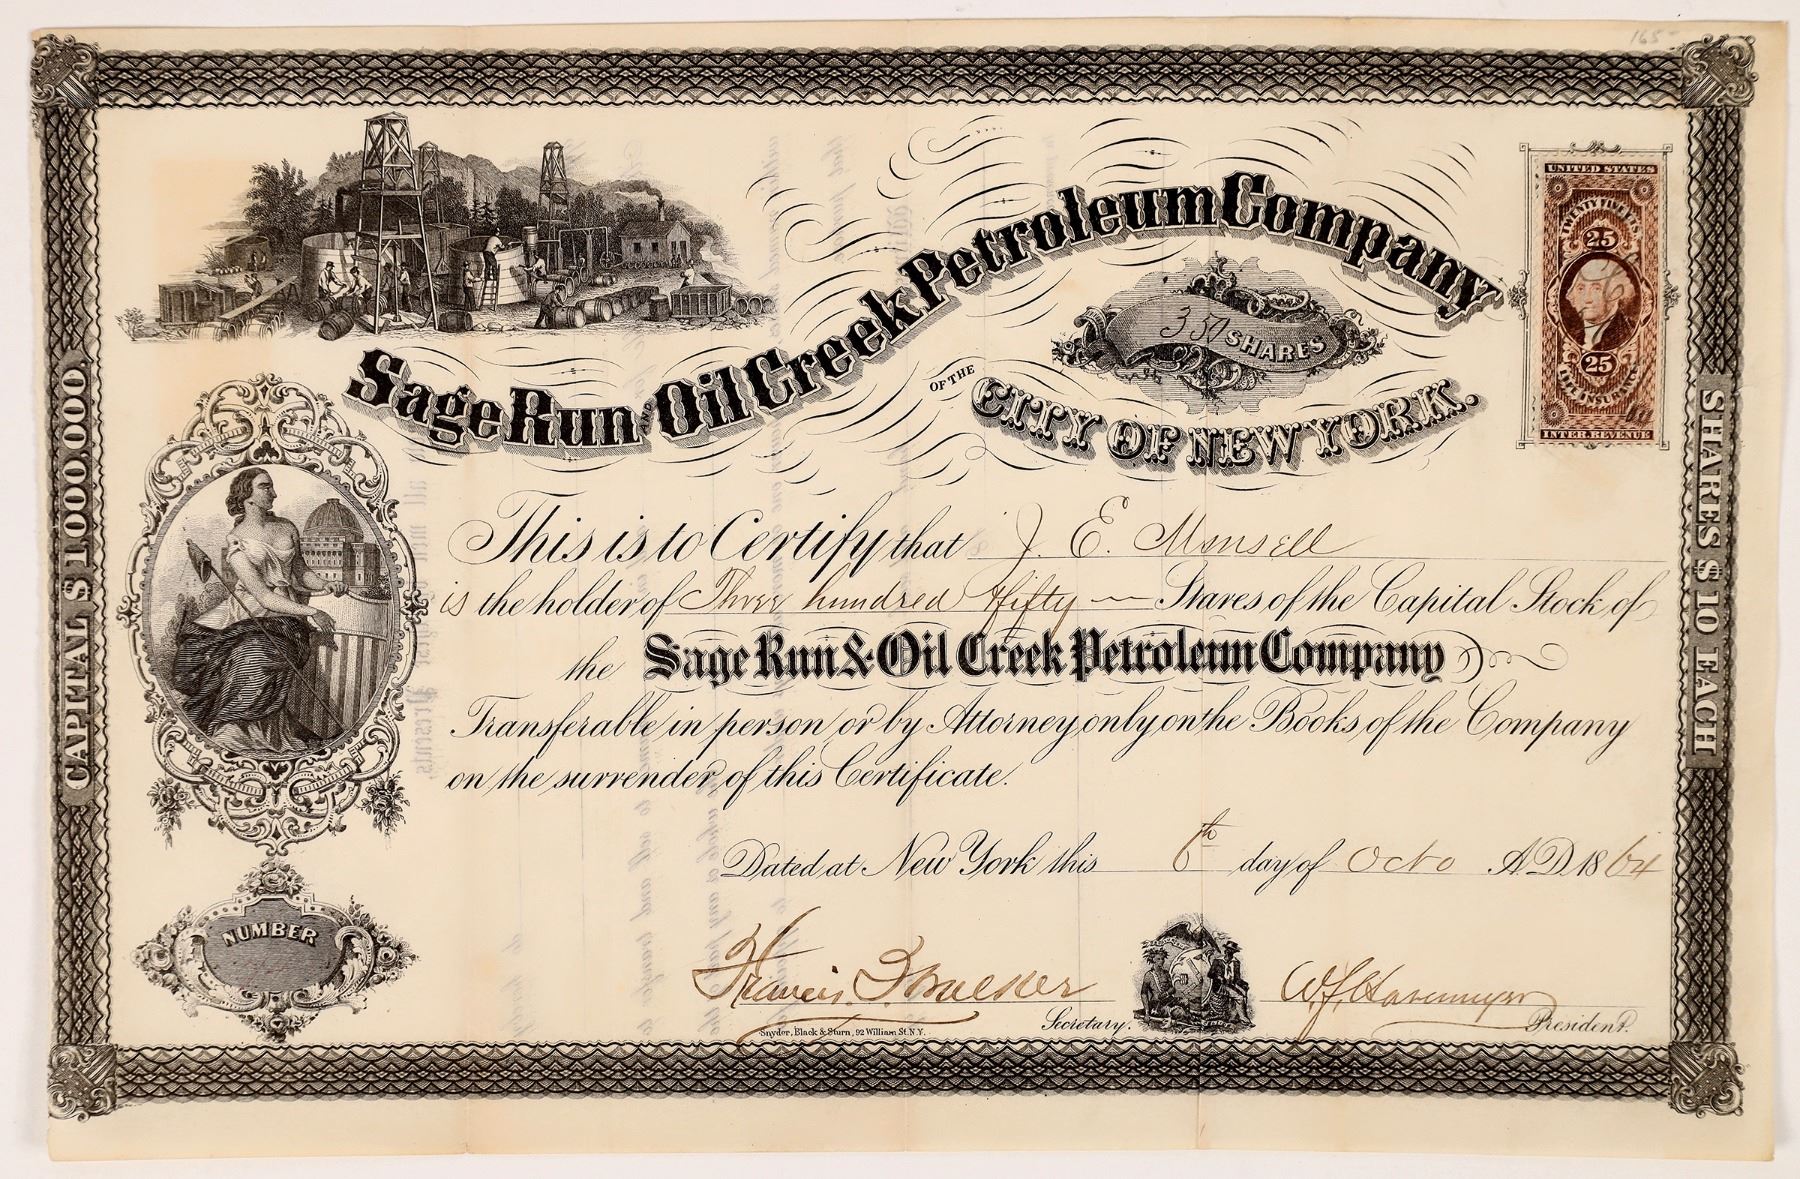 165
Sage Run AND Oil Creek Petroleum Company
OF THE
CITY OF NEW YORK.
350 SHARES
UNITED STATES
TWENTY FIVE CTS.
25
25
LIFE INSURANCE
INTER. REVENUE
CAPITAL $1,000,000.
SHARES $10 EACH
This is to Certify that J. E. Munsell
is the holder of Three hundred & fifty Shares of the Capital Stock of
the Sage Run & Oil Creek Petroleum Company
Transferable in person or by Attorney only on the Books of the Company
on the surrender of this Certificate.
Dated at New York this 6th day of Octo A.D. 1864
NUMBER
Francis
Secretary.
W F Havemeyer
President.
Snyder, Black & Sturn, 92 William St. N.Y.